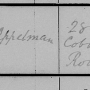 Appelman
28
Cobb
Ro